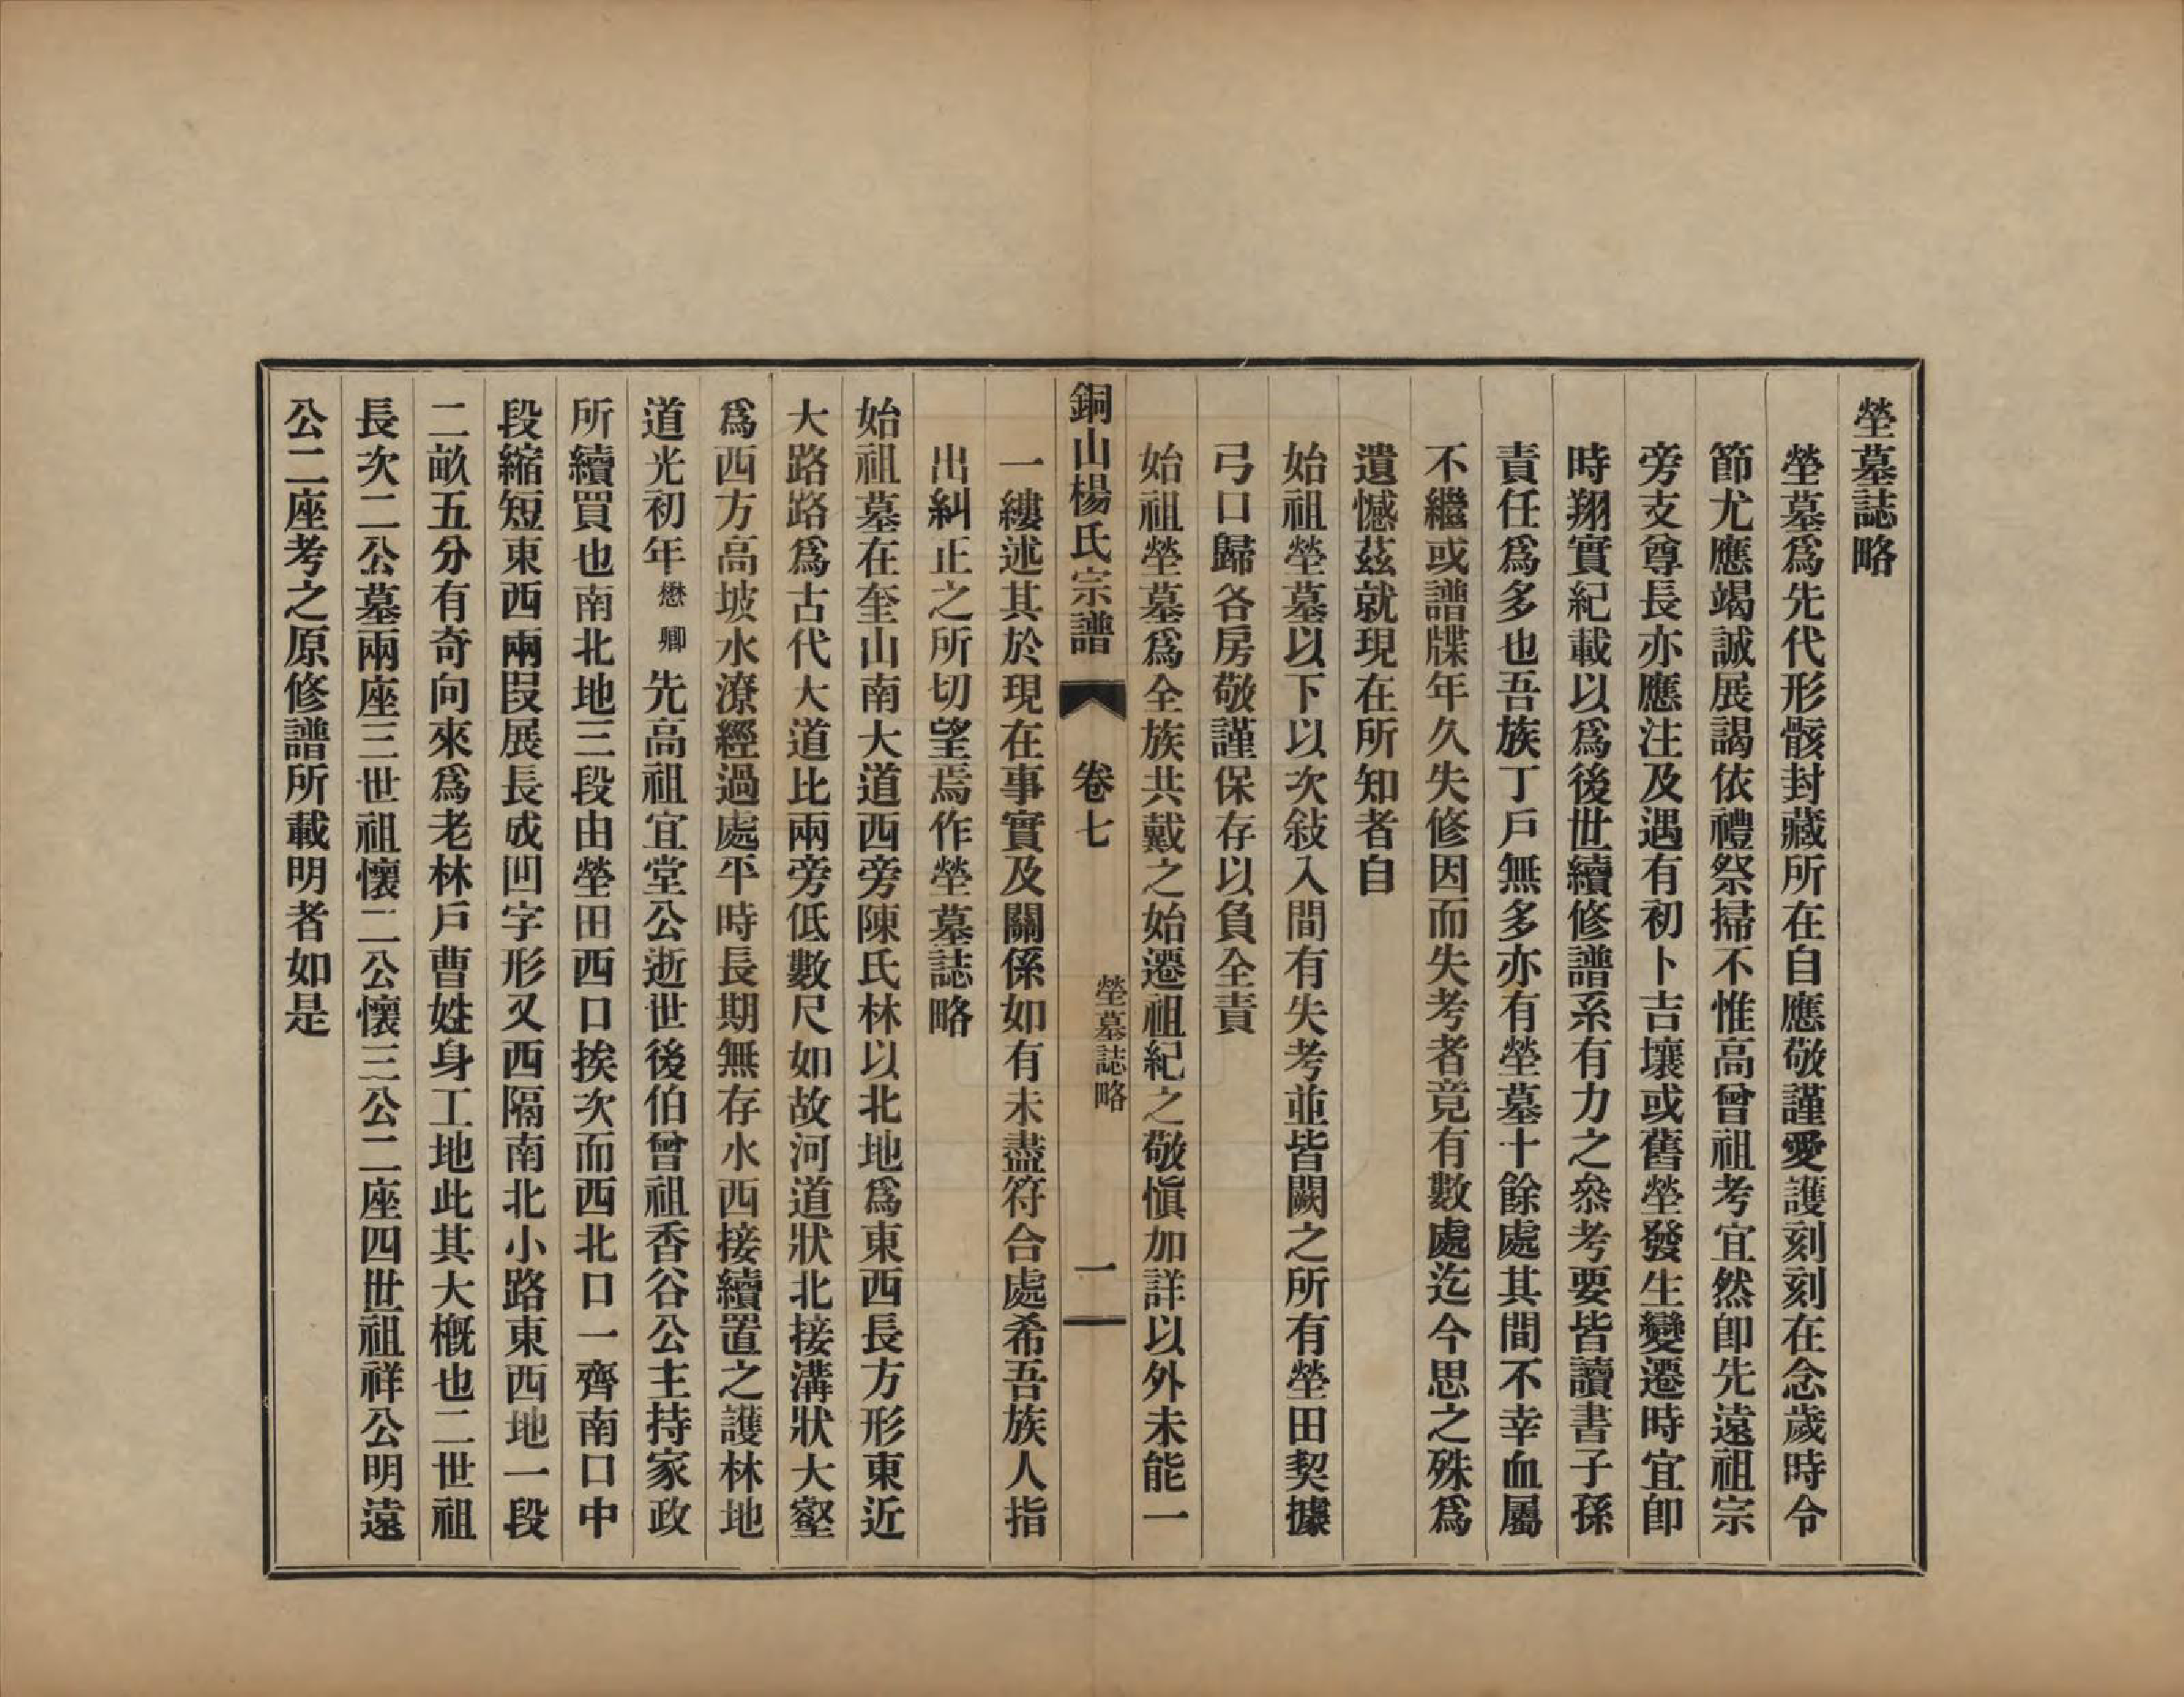 塋墓誌略
塋墓爲先代形骸封藏所在自應敬謹愛護刻刻在念歲時令
節尤應竭誠展謁依禮祭掃不惟高曾祖考宜然卽先遠祖宗
旁支尊長亦應注及遇有初卜吉壤或舊塋發生變遷時宜卽
時翔實紀載以爲後世續修譜系有力之叅考要皆讀書子孫
責任爲多也吾族丁戶無多亦有塋墓十餘處其間不幸血屬
不繼或譜牒年久失修因而失考者竟有數處迄今思之殊爲
遺憾茲就現在所知者自
始祖塋墓以下以次敍入間有失考並皆闕之所有塋田契據
弓口歸各房敬謹保存以負全責
始祖塋墓爲全族共戴之始遷祖紀之敬愼加詳以外未能一
銅山楊氏宗譜 卷七 塋墓誌略 一
一縷述其於現在事實及關係如有未盡符合處希吾族人指
出糾正之所切望焉作塋墓誌略
始祖墓在奎山南大道西旁陳氏林以北地爲東西長方形東近
大路路爲古代大道比兩旁低數尺如故河道狀北接溝狀大壑
爲西方高坡水潦經過處平時長期無存水西接續置之護林地
道光初年懋卿先高祖宜堂公逝世後伯曾祖香谷公主持家政
所續買也南北地三段由塋田西口挨次而西北口一齊南口中
段縮短東西兩段展長成凹字形又西隔南北小路東西地一段
二畝五分有奇向來爲老林戶曹姓身工地此其大概也二世祖
長次二公墓兩座三世祖懷二公懷三公二座四世祖祥公明遠
公二座考之原修譜所載明者如是